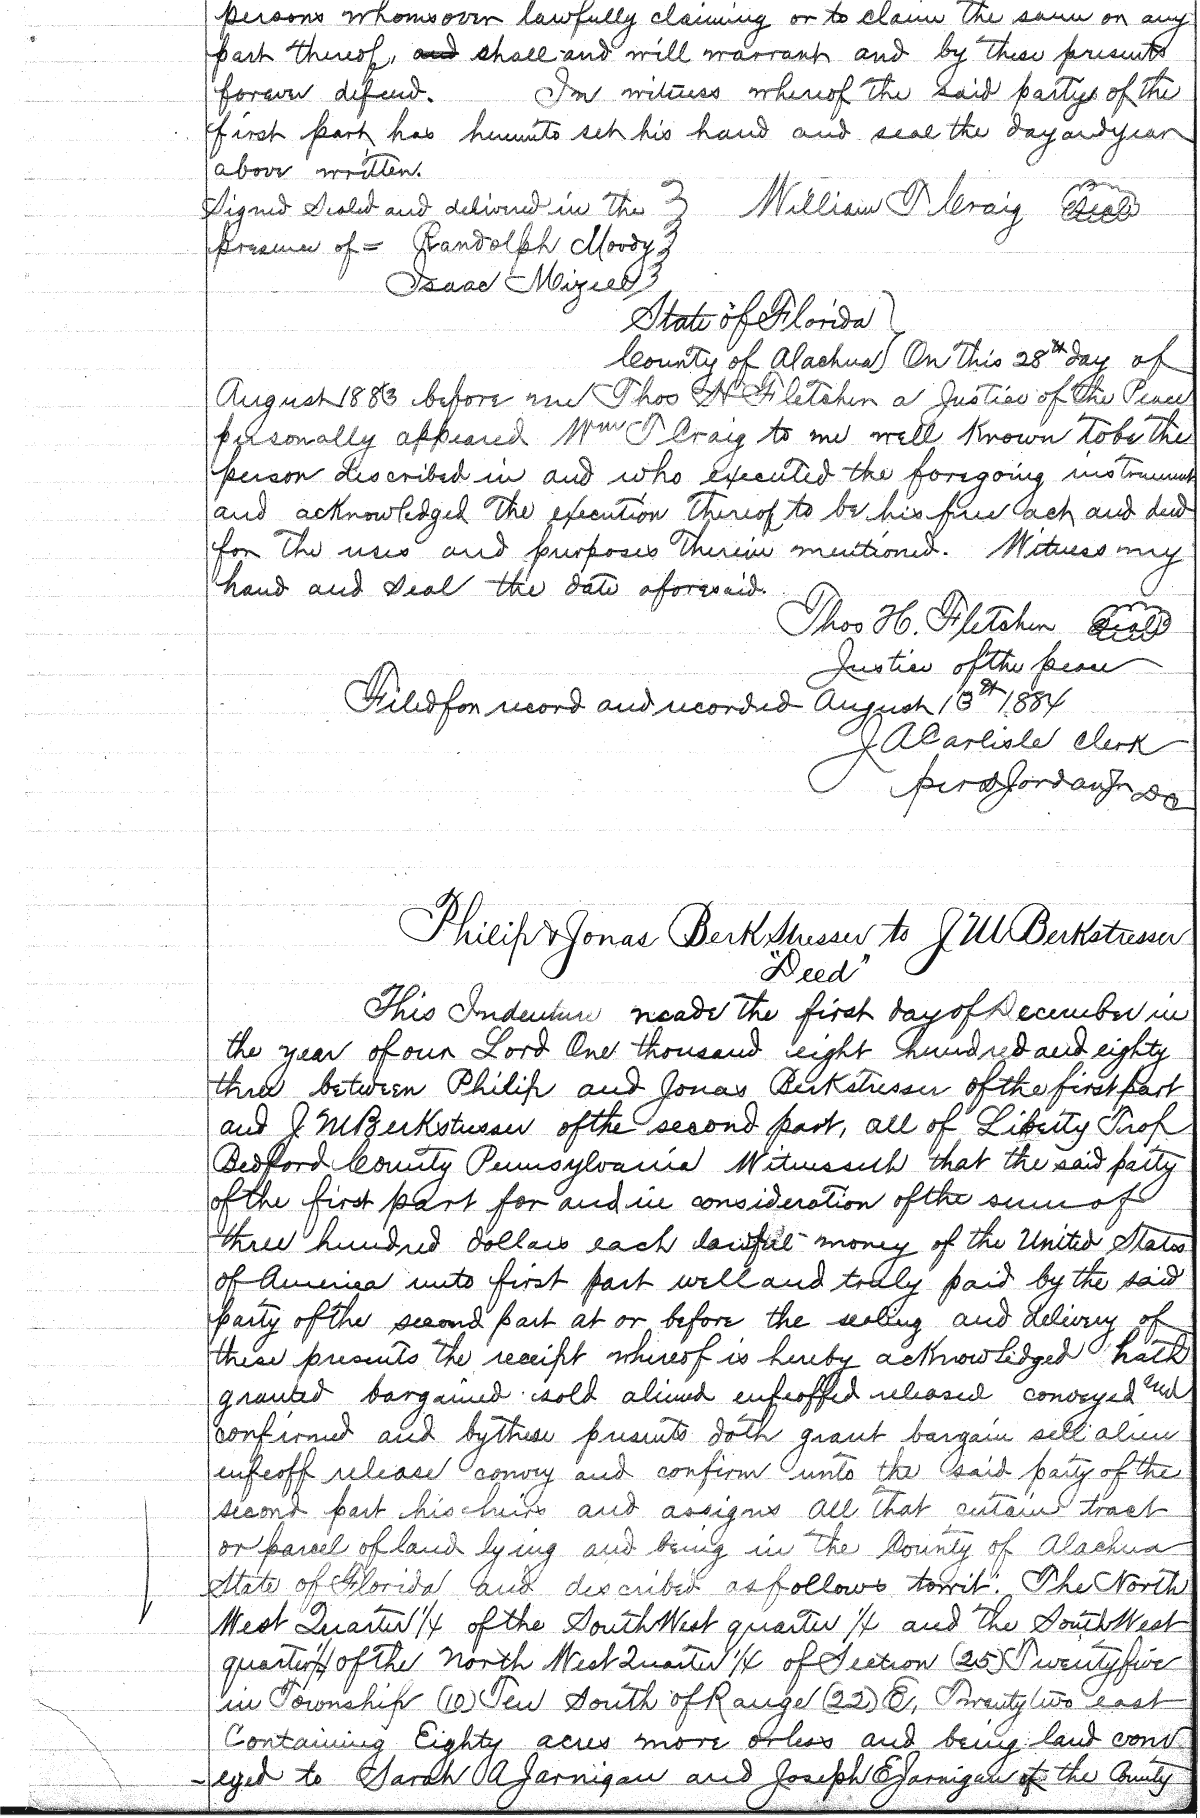 persons whomsover lawfully claiming or to claim the same on any
part thereof, and shall and will warrant and by these presents
forever defend. In witness whereof the said partys of the
first part has hereunto set his hand and seal the day and year
above written.
Signed Sealed and delivered in the William T Craig Seal
presence of = Randolph Moody
Isaac Mizell
State of Florida
County of Alachua On this 28th day of
August 1883 before me Thos H Fletcher a Justice of the Peace
personally appeared Wm T Craig to me well Known to be the
person described in and who executed the foregoing instrument
and acknowledged the execution thereof to be his free act and deed
for the uses and purposes therein mentioned. Witness my
hand and seal the date aforesaid.
Thos H. Fletcher Seal
Justice of the peace
Filed for record and recorded August 13th 1884
J A Carlisle Clerk
per Jordan Jr DC
Philip & Jonas Berkstresser to J M Berkstresser
"Deed"
This Indenture made the first day of December in
the year of our Lord One thousand eight hundred and eighty
three between Philip and Jonas Berkstresser of the first part
and J M Berkstresser of the second part, all of Liberty Trop
Bedford County Pennsylvania Witnesseth that the said party
of the first part for and in consideration of the sum of
three hundred dollars each lawful money of the United States
of America unto first part well and truly paid by the said
party of the second part at or before the sealing and delivery of
these presents the receipt whereof is hereby acknowledged hath
granted bargained sold aliened enfeoffed released conveyed and
confirmed and by these presents doth grant bargain sell alien
enfeoff release convey and confirm unto the said party of the
second part his heirs and assigns all that certain tract
or parcel of land lying and being in the County of Alachua
State of Florida and described as follows towit: The North
West Quarter 1/4 of the South West quarter 1/4 and the South West
quarter 1/4 of the North West Quarter 1/4 of Section (25) Twenty five
in Township (10) Ten South of Range (22) E, Twenty two east
Containing Eighty acres more or less and being land conv
eyed to Sarah A Jarnigan and Joseph E Jarnigan of the County